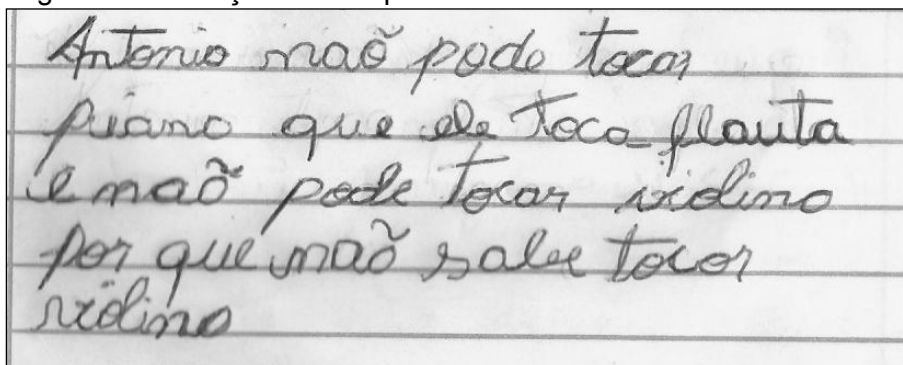 Antonio não pode tocar
piano que ele toca flauta
e não pode tocar violino
por que não sabe tocar
violino